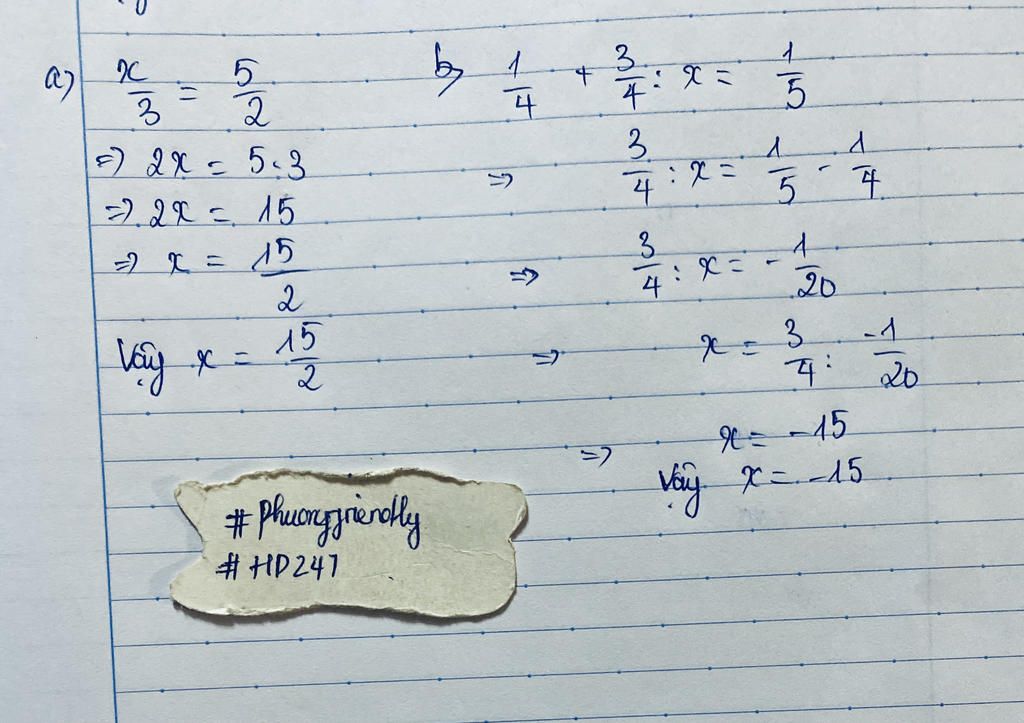 a) x/3 = 5/2
=> 2x = 5.3
=> 2x = 15
=> x = 15/2
Vậy x = 15/2
b) 1/4 + 3/4 : x = 1/5
=> 3/4 : x = 1/5 - 1/4
=> 3/4 : x = -1/20
=> x = 3/4 : -1/20
=> x = -15
Vậy x = -15
# phuongfriendly
# HD247